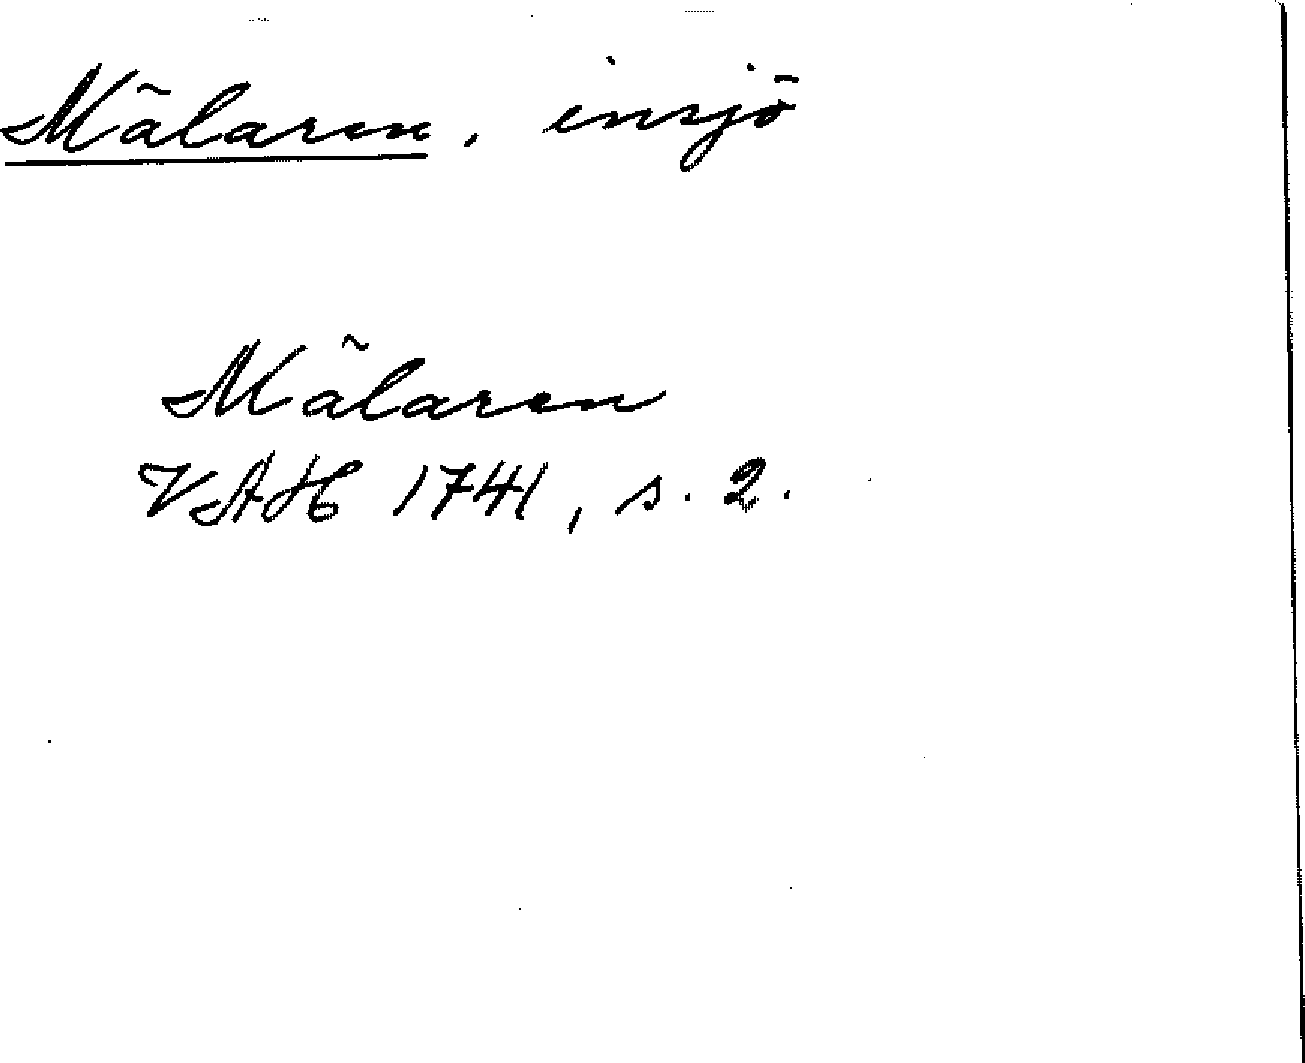 Mälaren, insjö
Mälaren
VAH 1741, s. 2.